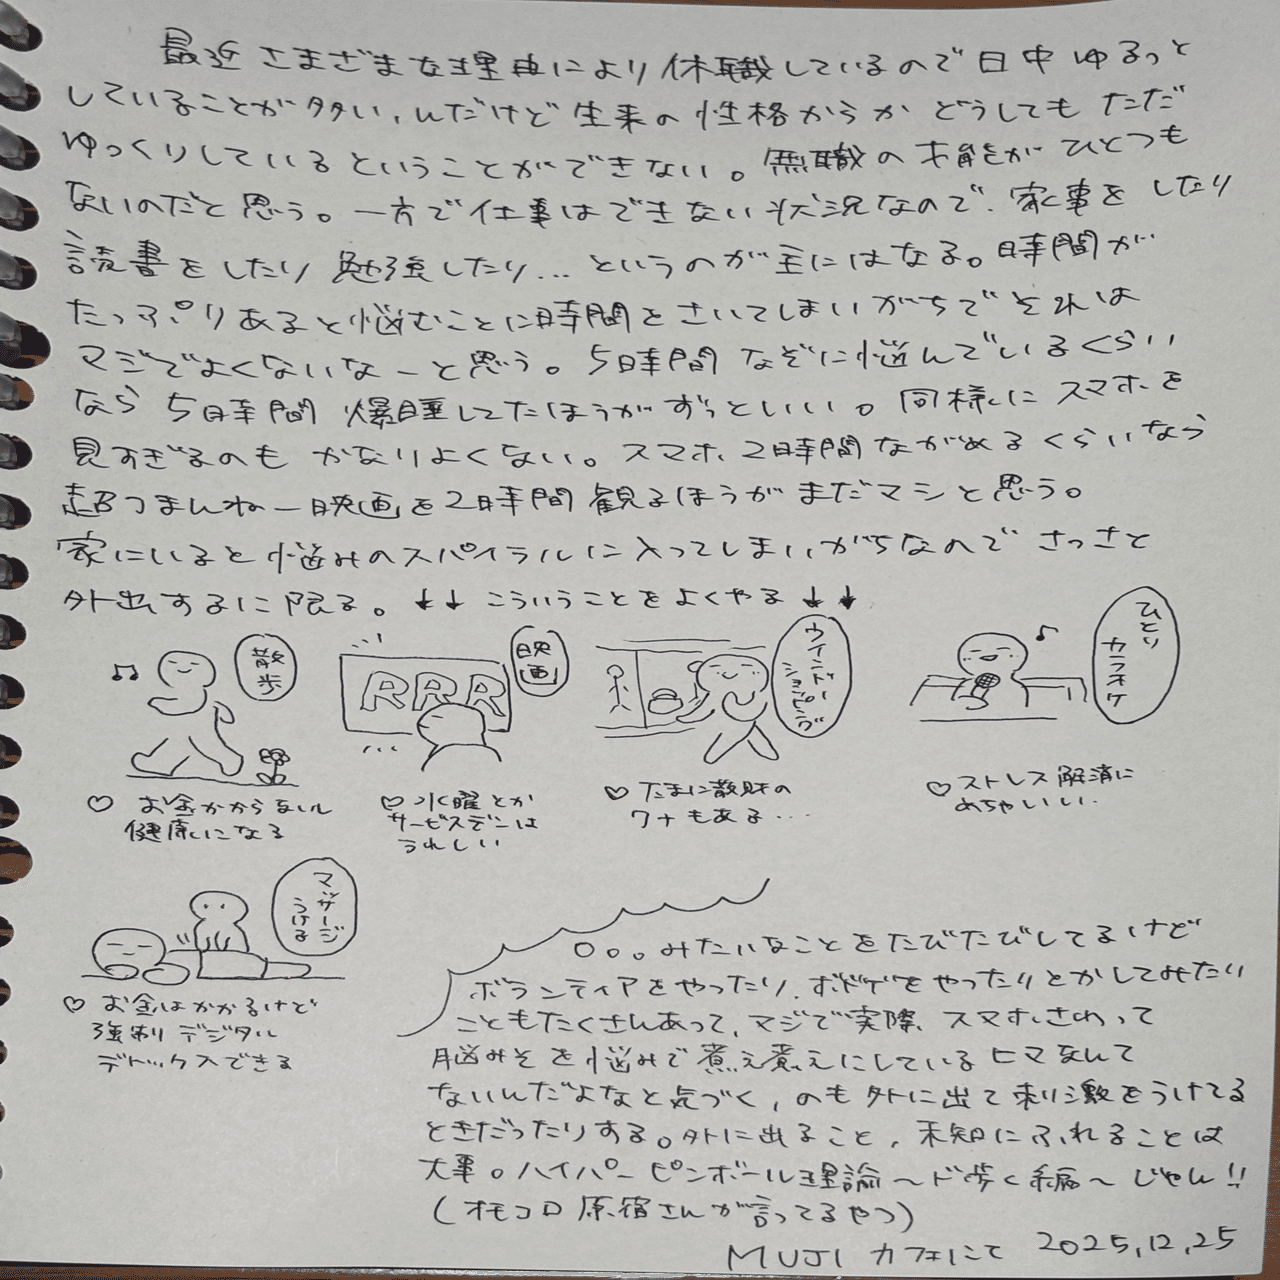 最近さまざまな理由により休職しているので日中ゆるっと
していることが多い、んだけど生来の性格からかどうしてもただ
ゆっくりしているということができない。無職の才能がひとつも
ないのだと思う。一方で仕事はできない状況なので、家事をしたり
読書をしたり勉強したり…というのが主にはなる。時間が
たっぷりあると悩むことに時間をさいてしまいがちでそれは
マジでよくないなーと思う。5時間なぞに悩んでいるくらい
なら5時間爆睡してたほうがずっといい。同様にスマホを
見すぎるのもかなりよくない。スマホ2時間ながめるくらいなら
超つまんねー映画を2時間観るほうがまだマシと思う。
家にいると悩みのスパイラルに入ってしまいがちなのでさっさと
外出するに限る。↓↓こういうことをよくやる↓↓
散歩
♡お金かからないし
健康になる
映画
RRR
♡水曜とか
サービスデーは
うれしい
ウインドーショッピング
♡たまに散財の
ワナもある…
ひとりカラオケ
♡ストレス解消に
めちゃいい..
マッサージうける
♡お金はかかるけど
強制デジタル
デトックスできる
○○。みたいなことをたびたびしてるけど
ボランティアをやったり、ボドゲをやったりとかしてみたい
こともたくさんあって、マジで実際、スマホさわって
脳みそを悩みで煮え煮えにしているヒマなんて
ないんだよなと気づく、のも外に出て刺激をうけてる
ときだったりする。外に出ること、未知にふれることは
大事。ハイパーピンボール理論〜ド歩く編〜じゃん!!
(オモコロ原宿さんが言ってるやつ)
MUJIカフェにて 2025,12,25